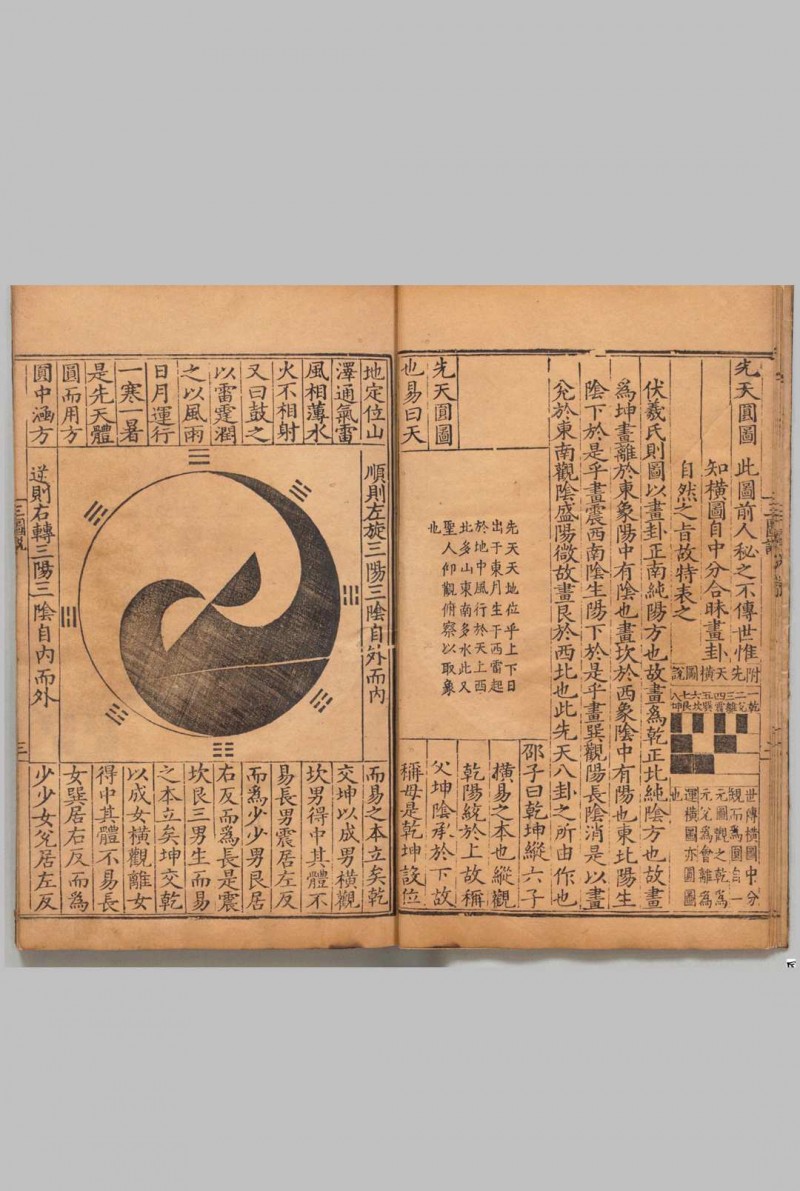 先天圓圖
此圖前人秘之不傳世惟
知橫圖自中分合昧畫卦
自然之旨故特表之
附先天橫圖說
一乾
二兌
三離
四震
五巽
六坎
七艮
八坤
世傳橫圖中分
觀而為圓自一
元圖觀之乾為
元兌為會離為
運橫圖亦圓圖
也
伏羲氏則圖以畫卦正南純陽方也故畫為乾正北純陰方也故畫
為坤畫離於東象陽中有陰也畫坎於西象陰中有陽也東北陽生
陰下於是乎畫震西南陰生陽下於是乎畫巽觀陽長陰消是以畫
兌於東南觀陰盛陽微故畫艮於西北也此先天八卦之所由作也
先天圓圖
也易曰天
先天天地位乎上下日
出于東月生于西雷起
於地中風行於天上西
北多山東南多水此又
聖人仰觀俯察以取象
也
邵子曰乾坤縱六子
橫易之本也縱觀
乾陽統於上故稱
父坤陰承於下故
稱母是乾坤設位
地定位山
澤通氣雷
風相薄水
火不相射
又曰鼓之
以雷霆潤
之以風雨
日月運行
一寒一暑
是先天體
圓而用方
圓中涵方
順則左旋三陽三陰自外而內
逆則右轉三陽三陰自內而外
而易之本立矣乾
交坤以成男橫觀
坎男得中其體不
易長男震居左反
而為少少男艮居
右反而為長是震
坎艮三男生而易
之本立矣坤交乾
以成女橫觀離女
得中其體不易長
女巽居右反而為
少少女兌居左反
三